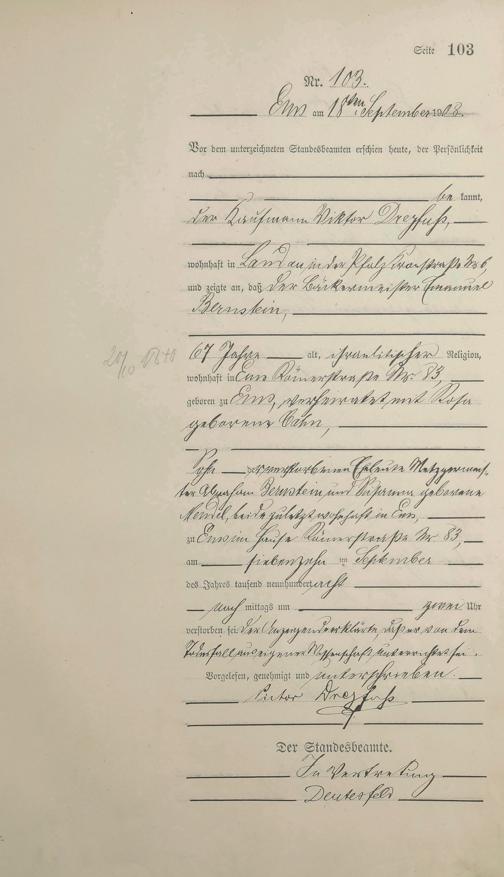 Seite 103
Nr. 103.
Ems am 18ten September 1908.
Vor dem unterzeichneten Standesbeamten erschien heute, der Persönlichkeit
nach
be kannt,
der Kaufmann Viktor Dreyfuß,
wohnhaft in Landau in der Pfalz, Kronstraße Nr 6,
und zeigte an, daß der Bäckermeister Emanuel
Bernstein,
67 Jahre alt, israelitischer Religion,
wohnhaft in Ems Römerstraße Nr. 83,
geboren zu Ems, verheiratet mit Rosa
geborene Cahn,
Sohn der verstorbenen Eheleute Metzgermeis-
ter Abraham Bernstein und Susanna geborene
Mendel, beide zuletzt wohnhaft in Ems,
zu Ems im Hause Römerstraße Nr 83,
am siebenzehn ten September
des Jahres tausend neunhundert acht
nach mittags um zwei Uhr
verstorben sei. Der Anzeigende erklärte, daß er von dem
Todesfall aus eigener Wissenschaft unterrichtet sei.
Vorgelesen, genehmigt und unterschrieben.
Victor Dreyfuß
Der Standesbeamte.
In Vertretung